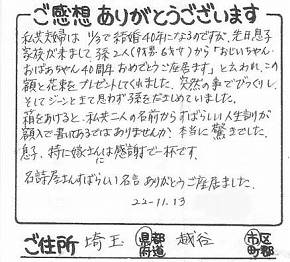 ご感想 ありがとうございます
私共夫婦は 11/3で結婚40年になるのですが、先日息子
家族が来まして孫2人(9才と6才)から「おじいちゃん・
おばあちゃん40周年おめでとうご座居ます」と云われ、この
額と花束をプレゼントしてくれました。突然の事でびっくりし、
そしてジーンとまて思わず孫をだきしめていました。
箱をあけると、私共二人の名前からすばらしい人生訓が
額入で書いてあるではありませんか? 本当に驚きでした。
息子、特に嫁さんには感謝で一杯です。
名詩屋さんすばらしい名言ありがとうご座居ました。
22-11.13
ご住所 埼玉 都道府県 越谷 市区町郡